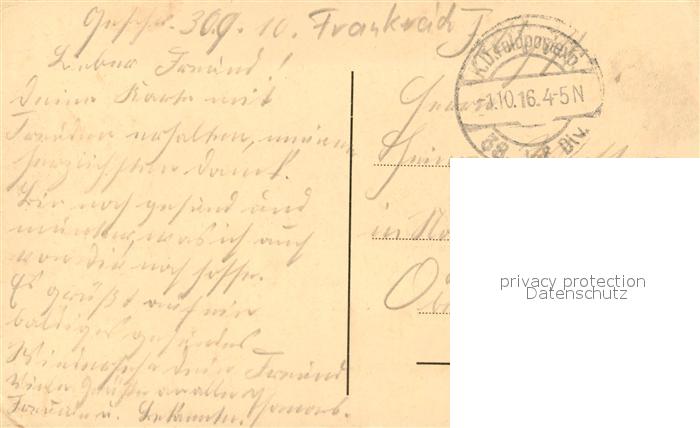 Geschr. 30.9. 16. Frankreich
Lieber Freund!
Deine Karte mit
Freuden erhalten, meinen
herzlichsten Dank.
Bin noch gesund und
munter, was ich auch
von Dir noch hoffe.
Es grüßt auf ein
baldiges gesundes
Wiedersehn dein Freund
Viele Grüße an alle
Freunde u. Bekannten.
K.D. Feldpostexp.
1.10.16. 4-5 N
38. Div.
Herrn
in
privacy protection
Datenschutz